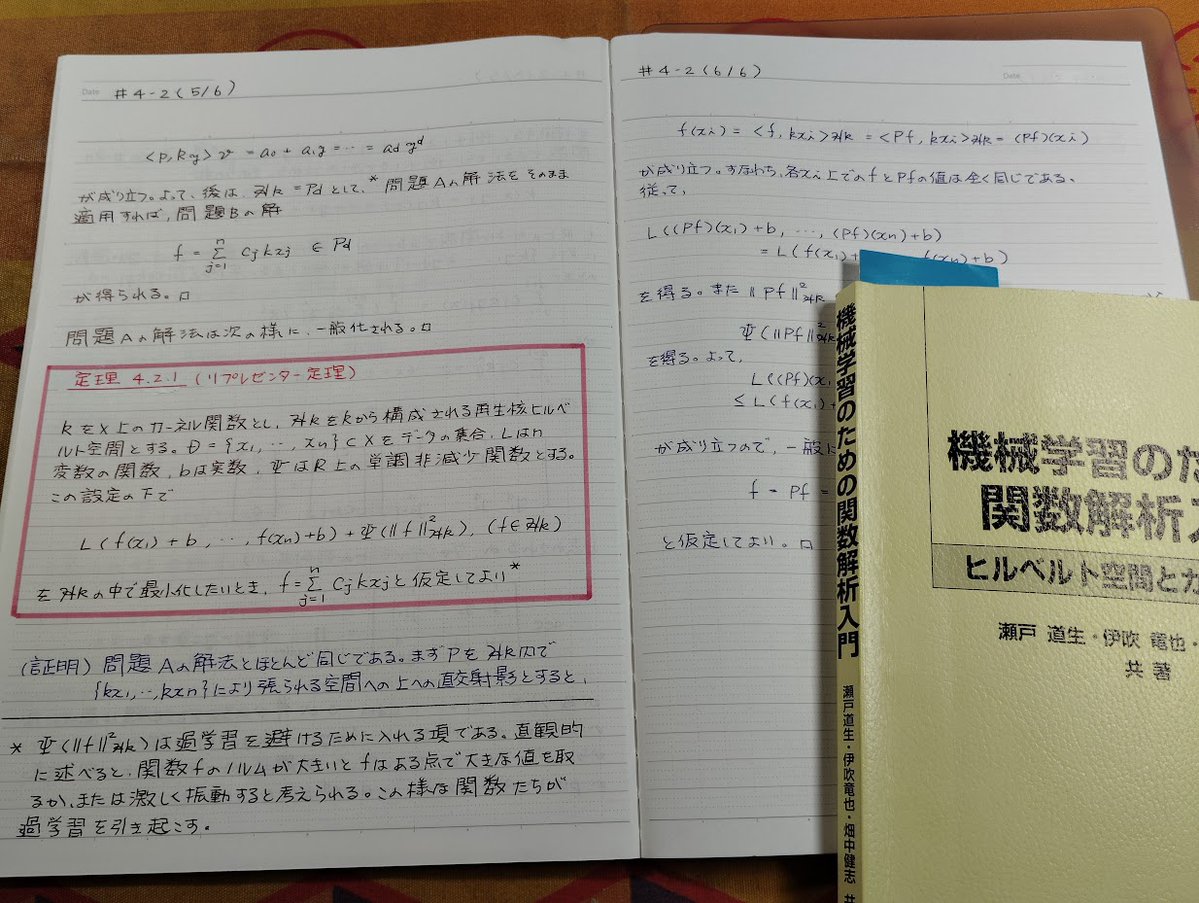 Date #4-2(5/6)
<p, ky>v = a0 + a1y = … = ad y^d
が成り立つ。よって、後は、ℋk = Pdとして、*問題Aの解法をそのまま
適用すれば、問題Bの解
f = Σ_{j=1}^{n} cj kxj ∈ Pd
が得られる。□
問題Aの解法は次の様に、一般化される。□
定理 4.2.1 (リプレゼンター定理)
kをX上のカーネル関数とし、ℋkをkから構成される再生核ヒルベ
ルト空間とする。D = {x1, …, xn} ⊂ Xをデータの集合、Lはn
変数の関数、bは実数、ΨはR上の単調非減少関数とする。
この設定の下で
L(f(x1)+b, …, f(xn)+b) + Ψ(‖f‖²ℋk), (f∈ℋk)
をℋkの中で最小化したいとき、f = Σ_{j=1}^{n} cj kxjと仮定してよい*
(証明) 問題Aの解法とほとんど同じである。まずPをℋk内で
{kx1, …, kxn}により張られる空間への上への直交射影とすると、
* Ψ(‖f‖²ℋk)は過学習を避けるために入れる項である。直観的
に述べると、関数fのノルムが大きいとfはある点で大きな値を取
るか、または激しく振動すると考えられる。この様な関数たちが
過学習を引き起こす。
#4-2(6/6)
Date
f(xi) = <f, kxi>ℋk = <Pf, kxi>ℋk = (Pf)(xi)
が成り立つ。すなわち、各xi上でのfとPfの値は全く同じである。
従って、
L((Pf)(x1)+b, …, (Pf)(xn)+b)
= L(f(x1)+ f(xn)+b)
を得る。また ‖Pf‖²ℋk
Ψ(‖Pf‖²ℋ
を得る。よって、
L((Pf)(x1
≤ L(f(x1)+
が成り立つので、一般に
f = Pf =
と仮定してよい。□
機械学習のための関数解析入門
瀬戸道生・伊吹竜也・畑中健志 共
機械学習のた
関数解析入
ヒルベルト空間とカ
瀬戸 道生・伊吹 竜也・
共著